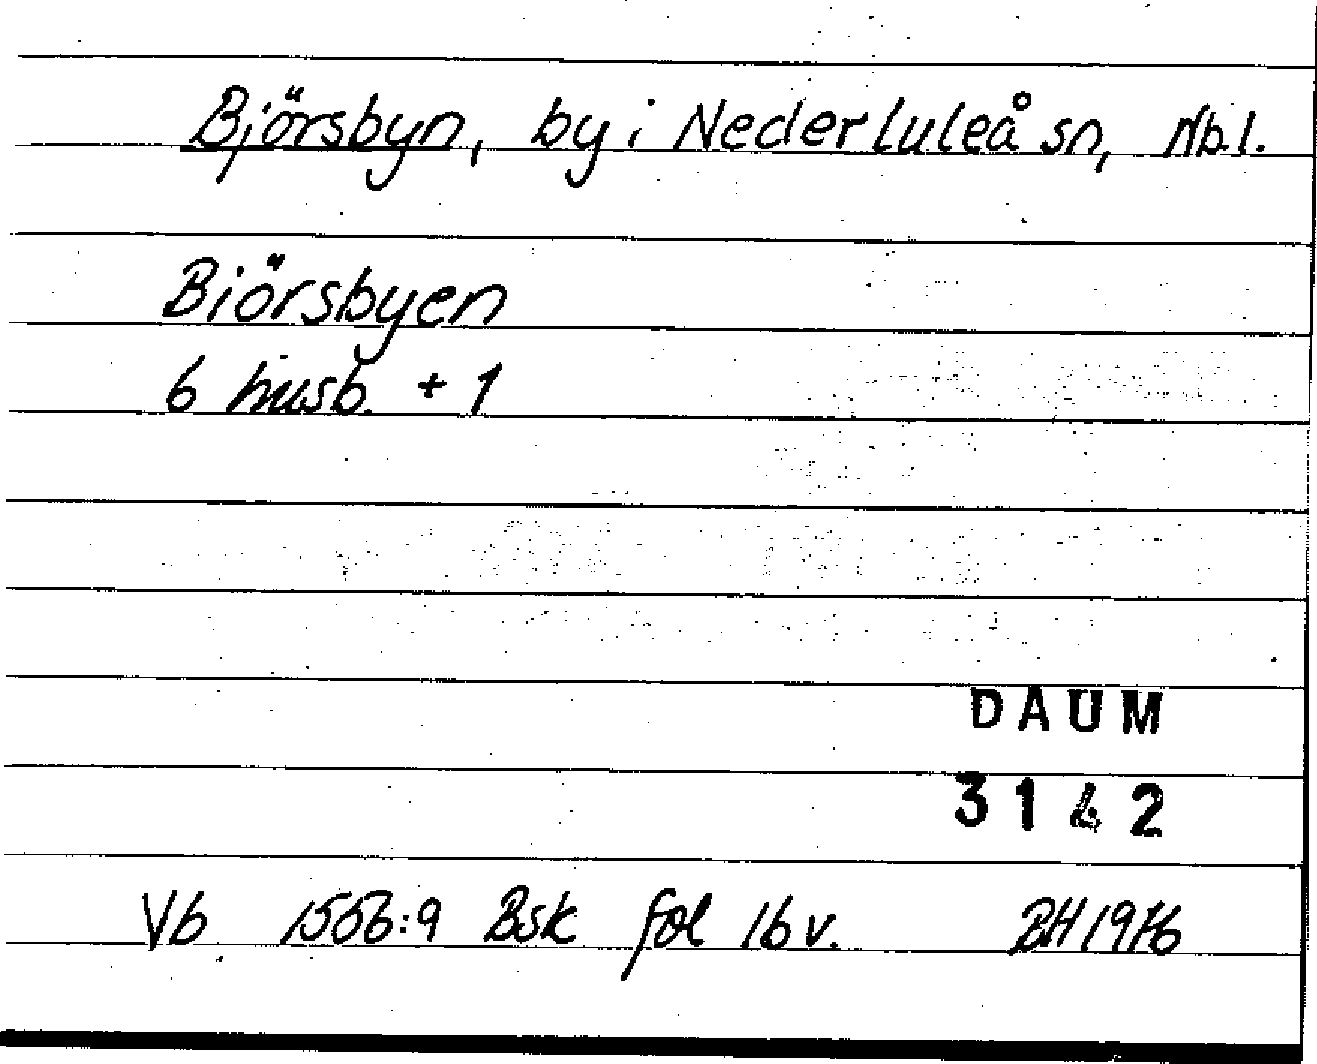 Björsbyn, by i Nederluleå sn, Nb.l.
Biörsbyen
6 husb. + 1
DAUM
3142
Vb 1556:9 Bsk fol 16 v. BH 1976